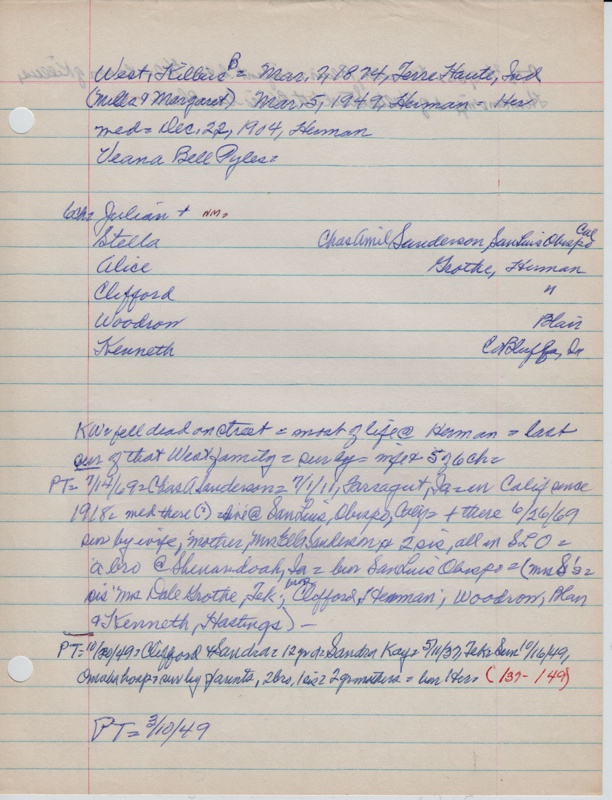 West, Killbis B = Mar. 7, 1874, Terre Haute, Ind
(Miles & Margaret) Mar. 5, 1949, Herman = Her
med = Dec. 22, 1904, Herman
Veana Bell Pyles =
6ch = Julian + nm.
Stella Chas Amil Sanderson, San Luis Obispo Cal
Alice Grothe, Herman
Clifford "
Woodrow Blair
Kenneth Co Bluffs, Ia
KW = fell dead on street = most of life @ Herman = last
sur of that West family = sur by = wife & 5 of 6 ch =
PT = 7/17/69 = Chas A Sanderson = 7/1/11, Farragut, Ia = in Calif since
1918 = med there (?) = @ San Luis, Obispo, Calif = + there 6/26/69
sur by wife, mother, Mrs Sanderson, 2 sis, all in SLO =
a bro @ Shenandoah, Ia = bur San Luis Obispo = (Mrs S's =
sis Mrs Dale Grothe, Tek; bros Clifford, Herman; Woodrow, Blair
& Kenneth, Hastings) —
PT = 10/20/49 = Clifford & Sandra = 12 yr d = Sandra Kay = 5/10/37, Tek = Sun 10/16/49,
Omaha hosp = sur by parents, 2 bro, 1 sis = 2 gr mothers = bur Her = ( 137 - 149)
PT = 3/10/49